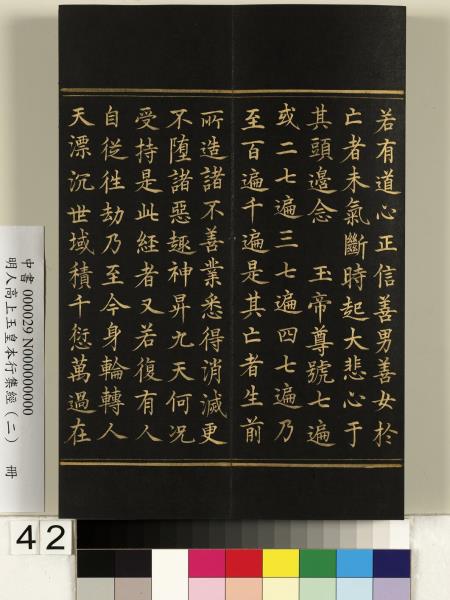 若有道心正信善男善女於
亡者未氣斷時起大悲心于
其頭邊念 玉帝尊號七遍
或二七遍三七遍四七遍乃
至百遍千遍是其亡者生前
所造諸不善業悉得消滅更
不墮諸惡趣神昇九天何況
受持是此經者又若復有人
自從徃劫乃至今身輪轉人
天漂沉世域積千愆萬過在
中書 000029 N000000000
明人高上玉皇本行集經（二） 冊
42